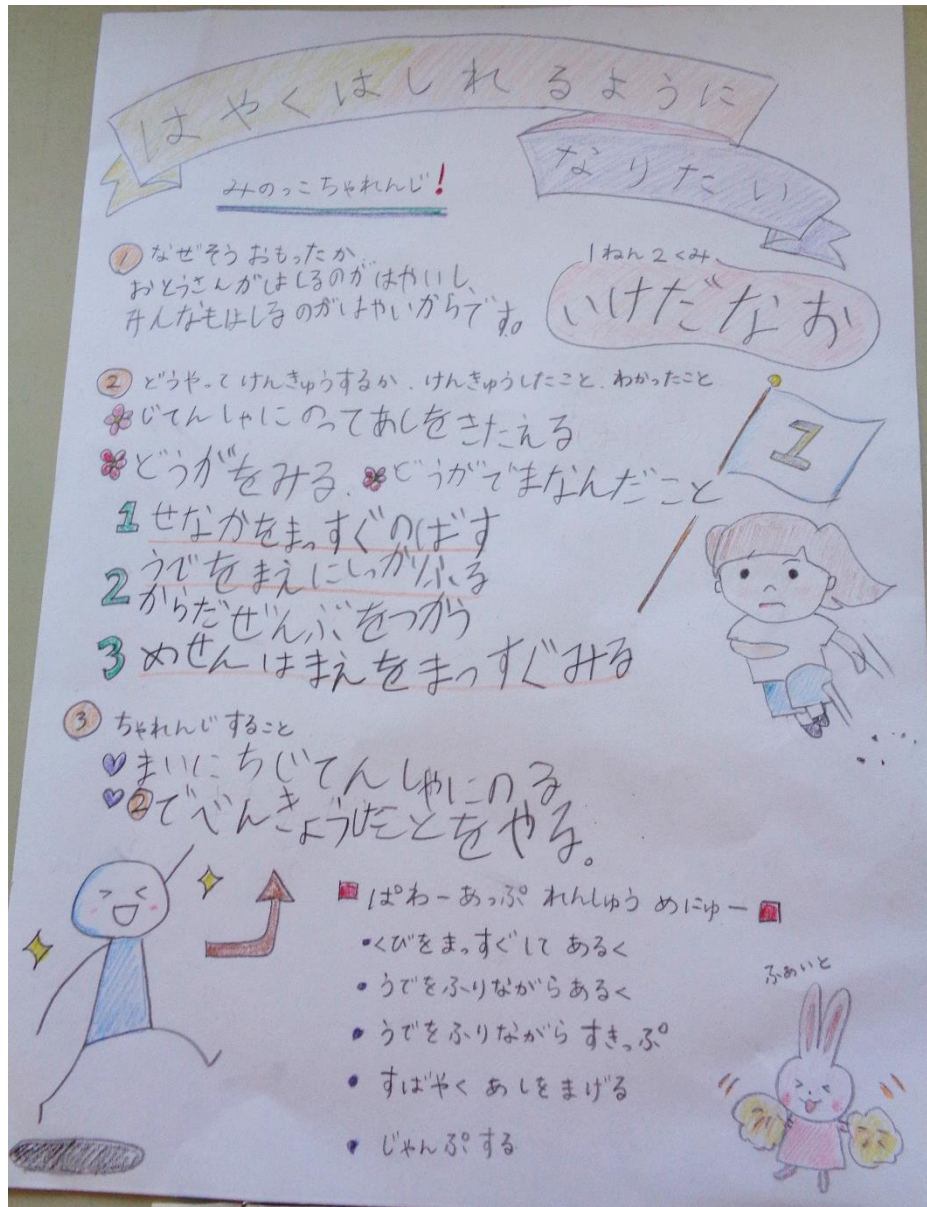 はやくはしれるように
なりたい
みのっこちゃれんじ!
1ねん2くみ
いけだなお
① なぜそうおもったか
おとうさんがはしるのがはやいし、
みんなもはしるのがはやいからです。
② どうやってけんきゅうするか、けんきゅうしたこと、わかったこと
じてんしゃにのってあしをきたえる
どうがをみる、どうがでまなんだこと
1 せなかをまっすぐのばす
2 うでをまえにしっかりふる
からだぜんぶをつかう
3 めせんはまえをまっすぐみる
1
③ ちゃれんじすること
まいにちじてんしゃにのる
②でべんきょうしたことをやる。
ぱわーあっぷ れんしゅう めにゅー
・くびをまっすぐして あるく
・うでをふりながらあるく
・うでをふりながら すきっぷ
・すばやく あしをまげる
・じゃんぷする
ふぁいと